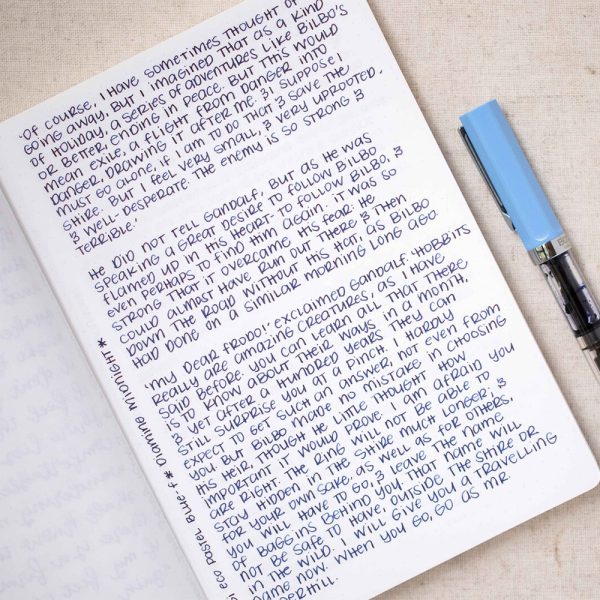 'OF COURSE, I HAVE SOMETIMES THOUGHT OF
GOING AWAY, BUT I IMAGINED THAT AS A KIND
OF HOLIDAY, A SERIES OF ADVENTURES LIKE BILBO'S
OR BETTER, ENDING IN PEACE. BUT THIS WOULD
MEAN EXILE, A FLIGHT FROM DANGER INTO
DANGER, DRAWING IT AFTER ME. & I SUPPOSE I
MUST GO ALONE, IF I AM TO DO THAT & SAVE THE
SHIRE. BUT I FEEL VERY SMALL, & VERY UPROOTED,
& WELL-DESPERATE. THE ENEMY IS SO STRONG &
TERRIBLE.'
HE DID NOT TELL GANDALF, BUT AS HE WAS
SPEAKING A GREAT DESIRE TO FOLLOW BILBO
FLAMED UP IN HIS HEART- TO FOLLOW BILBO, &
EVEN PERHAPS TO FIND HIM AGAIN. IT WAS SO
STRONG THAT IT OVERCAME HIS FEAR: HE
COULD ALMOST HAVE RUN OUT THERE & THEN
DOWN THE ROAD WITHOUT HIS HAT, AS BILBO
HAD DONE ON A SIMILAR MORNING LONG AGO.
'MY DEAR FRODO!' EXCLAIMED GANDALF. 'HOBBITS
REALLY ARE AMAZING CREATURES, AS I HAVE
SAID BEFORE. YOU CAN LEARN ALL THAT THERE
IS TO KNOW ABOUT THEIR WAYS IN A MONTH,
& YET AFTER A HUNDRED YEARS THEY CAN
STILL SURPRISE YOU AT A PINCH. I HARDLY
EXPECT TO GET SUCH AN ANSWER, NOT EVEN FROM
YOU. BUT BILBO MADE NO MISTAKE IN CHOOSING
HIS HEIR, THOUGH HE LITTLE THOUGHT HOW
IMPORTANT IT WOULD PROVE. I AM AFRAID YOU
ARE RIGHT. THE RING WILL NOT BE ABLE TO
STAY HIDDEN IN THE SHIRE MUCH LONGER; &
FOR YOUR OWN SAKE, AS WELL AS FOR OTHERS,
YOU WILL HAVE TO GO, & LEAVE THE NAME
OF BAGGINS BEHIND YOU. THAT NAME WILL
NOT BE SAFE TO HAVE, OUTSIDE THE SHIRE OR
IN THE WILD. I WILL GIVE YOU A TRAVELLING
NAME NOW. WHEN YOU GO, GO AS MR.
ECO PASTEL BLUE-F * DIAMINE MIDNIGHT *